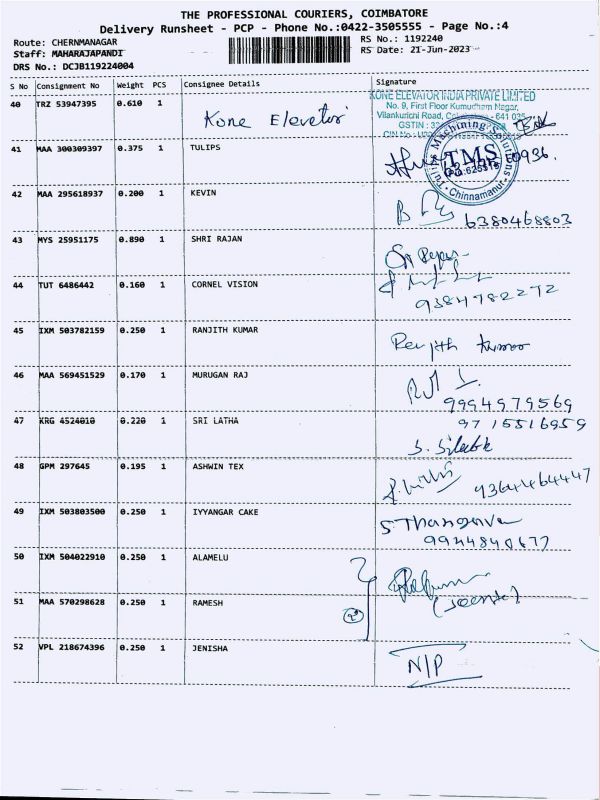 THE PROFESSIONAL COURIERS, COIMBATORE
Delivery Runsheet - PCP - Phone No.:0422-3505555 - Page No.:4
Route: CHERNMANAGAR RS No.: 1192240
Staff: MAHARAJAPANDI RS Date: 21-Jun-2023
DRS No.: DCJB119224004
S No Consignment No Weight PCS Consignee Details Signature
40 TRZ 53947395 0.610 1 Kone Elevator
KONE ELEVATOR INDIA PRIVATE LIMITED
No. 9, First Floor Kumudham Nagar,
Vilankurichi Road, - 641 035
GSTIN : 33
41 MAA 300309397 0.375 1 TULIPS
Machining Solutions
TMS
Chinnamanur
42 MAA 295618937 0.200 1 KEVIN
6380468803
43 MYS 25951175 0.890 1 SHRI RAJAN
44 TUT 6486442 0.160 1 CORNEL VISION
9384782272
45 IXM 503782159 0.250 1 RANJITH KUMAR
46 MAA 569451529 0.170 1 MURUGAN RAJ
9994979569
47 KRG 4524010 0.220 1 SRI LATHA 9715516959
48 GPM 297645 0.195 1 ASHWIN TEX
9364464447
49 IXM 503803500 0.250 1 IYYANGAR CAKE
9944840677
50 IXM 504022910 0.250 1 ALAMELU
51 MAA 570298628 0.250 1 RAMESH
52 VPL 218674396 0.250 1 JENISHA N/P